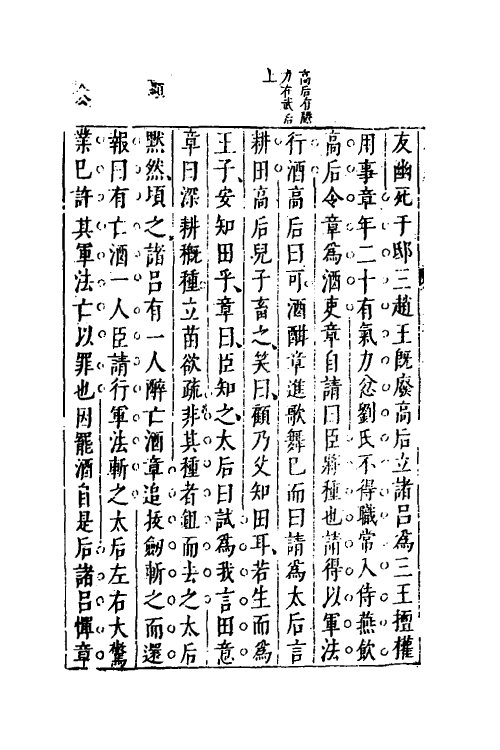 友幽死于邸三趙王既廢高后立諸呂為三王擅權
用事章年二十有氣力忿劉氏不得職常入侍燕飲
高后令章為酒吏章自請曰臣將種也請得以軍法
行酒高后曰可酒酣章進歌舞已而曰請為太后言
耕田高后兒子畜之笑曰顧乃父知田耳若生而為
王子安知田乎章曰臣知之太后曰試為我言田意
章曰深耕穊種立苗欲疏非其種者鉏而去之太后
黙然頃之諸呂有一人醉亡酒章追拔劒斬之而還
報曰有亡酒一人臣請行軍法斬之太后左右大驚
業已許其軍法亡以罪也因罷酒自是后諸呂憚章
高后有
力在武后
上